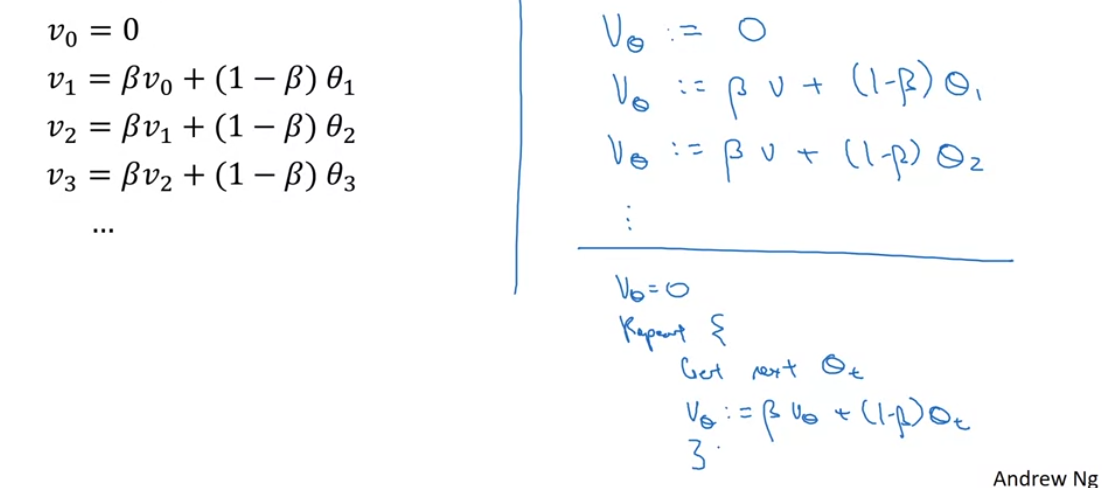 v₀ = 0
v₁ = βv₀ + (1 − β) θ₁
v₂ = βv₁ + (1 − β) θ₂
v₃ = βv₂ + (1 − β) θ₃
...
V_θ := 0
V_θ := β v + (1-β) θ₁
V_θ := β v + (1-β) θ₂
⋮
V_θ = 0
Repeat {
Get next θ_t
V_θ := β V_θ + (1-β) θ_t
}
Andrew Ng